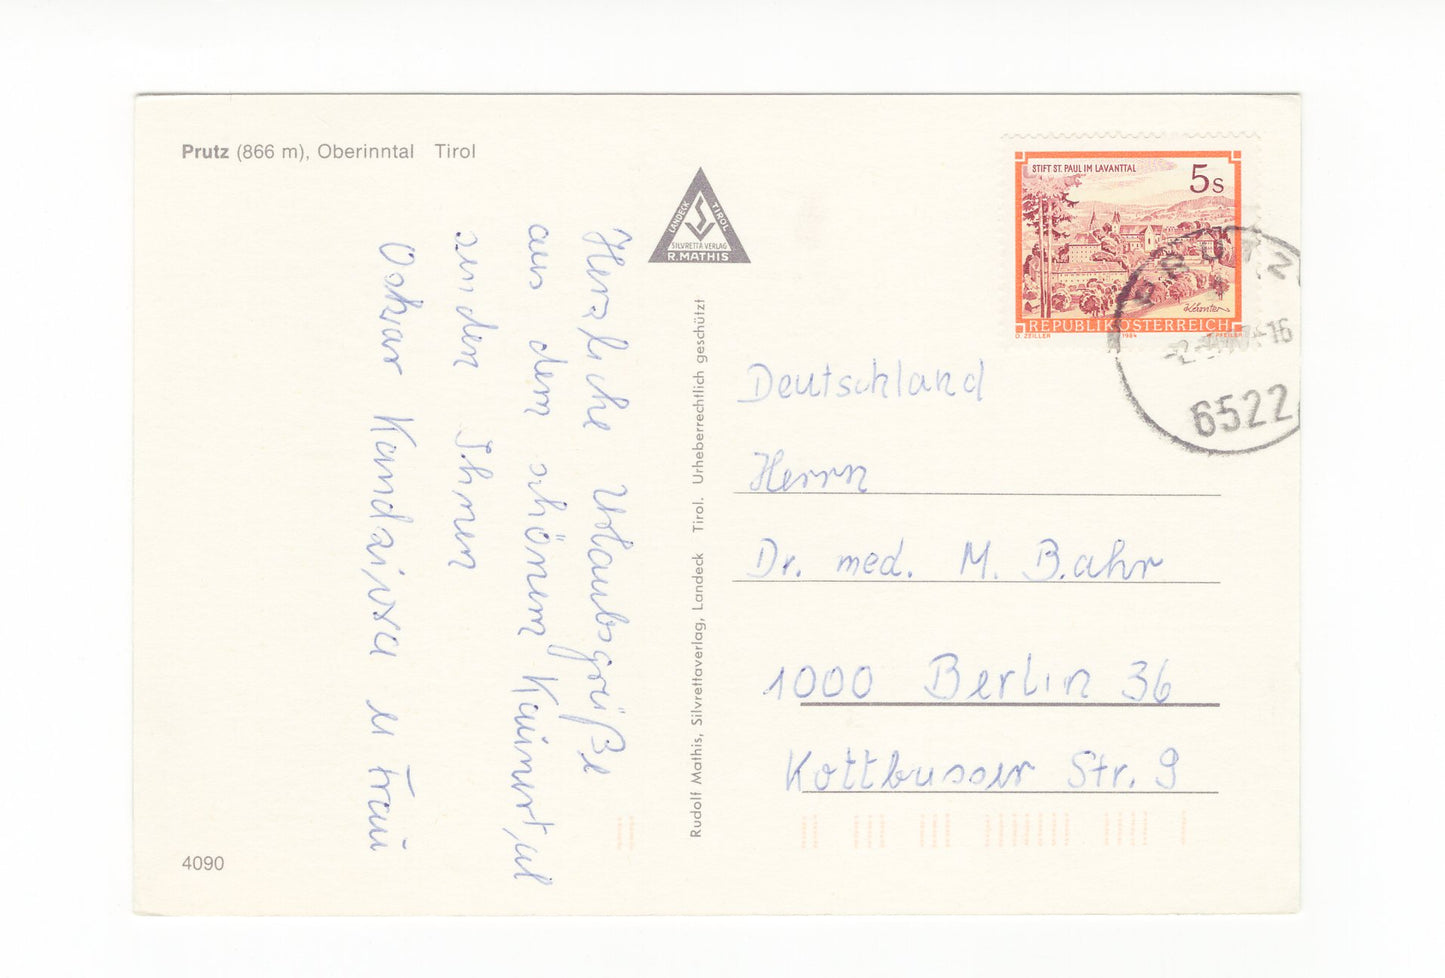 Prutz (866 m), Oberinntal Tirol
LANDECK TIROL
SILVRETTA VERLAG
R. MATHIS
STIFT ST. PAUL IM LAVANTTAL
5 S
REPUBLIK ÖSTERREICH
O. ZEILLER 1984 W. PFEILER
PRUTZ
-16
6522
Herzliche Urlaubsgrüße
aus dem schönem Kaunertal
senden Ihnen
Oskar
u Frau
Rudolf Mathis, Silvrettaverlag, Landeck Tirol. Urheberrechtlich geschützt
Deutschland
Herrn
Dr. med. M. Bahr
1000 Berlin 36
Kottbusser Str. 9
4090